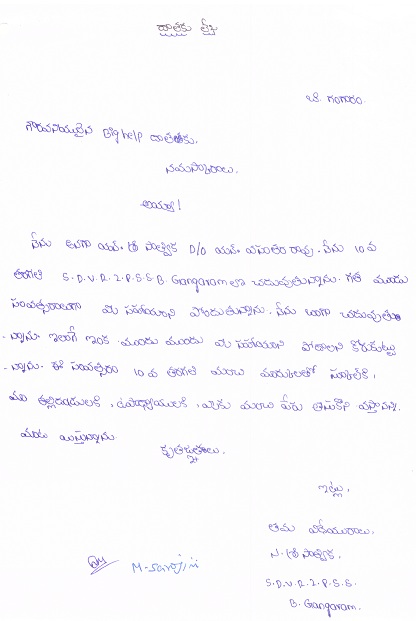 దాతకు లేఖ
బి. గంగారం.
గౌరవనీయులైన Big help దాతలకు.
నమస్కారాలు.
అయ్యా!
నేను అనగా యన్. శ్రీ సాత్విక D/O యన్. వసంత రావు. నేను 10 వ
తరగతి S.D.V.R.Z.P.S.S B. Gangaram లో చదువుతున్నాను. గత మూడు
సంవత్సరాలుగా మీ సహాయాన్ని పొందుతున్నాను. నేను బాగా చదువుతు
- న్నాను. ఇలాగే ఇంక ముందు ముందు మీ సహాయాన్ని పొందాలని కోరుకుంటు
- న్నాను. ఈ సంవత్సరం 10 వ తరగతి మంచి మార్కులతో స్కూల్‌కి,
మా తల్లిదండ్రులకి, ఉపాధ్యాయులకి, మీకు మంచి పేరు తీసుకొని వస్తానని.
మాట ఇస్తున్నాను
కృతజ్ఞతలు.
ఇట్లు,
తమ విధేయురాలు.
N. శ్రీ సాత్విక.
M. Sarojini
S.D.V.R.Z.P.S.S.
B. Gangaram.